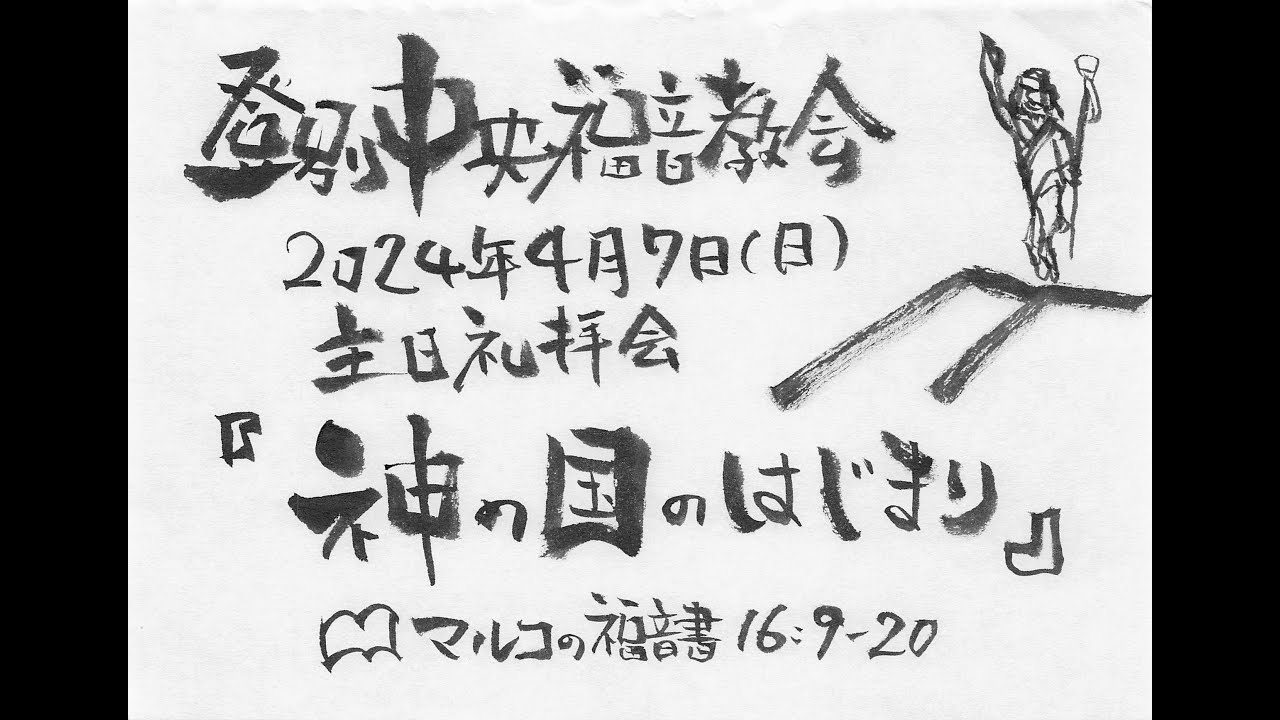 登別中央福音教会
2024年4月7日(日)
主日礼拝会
『神の国のはじまり』
マルコの福音書16:9-20